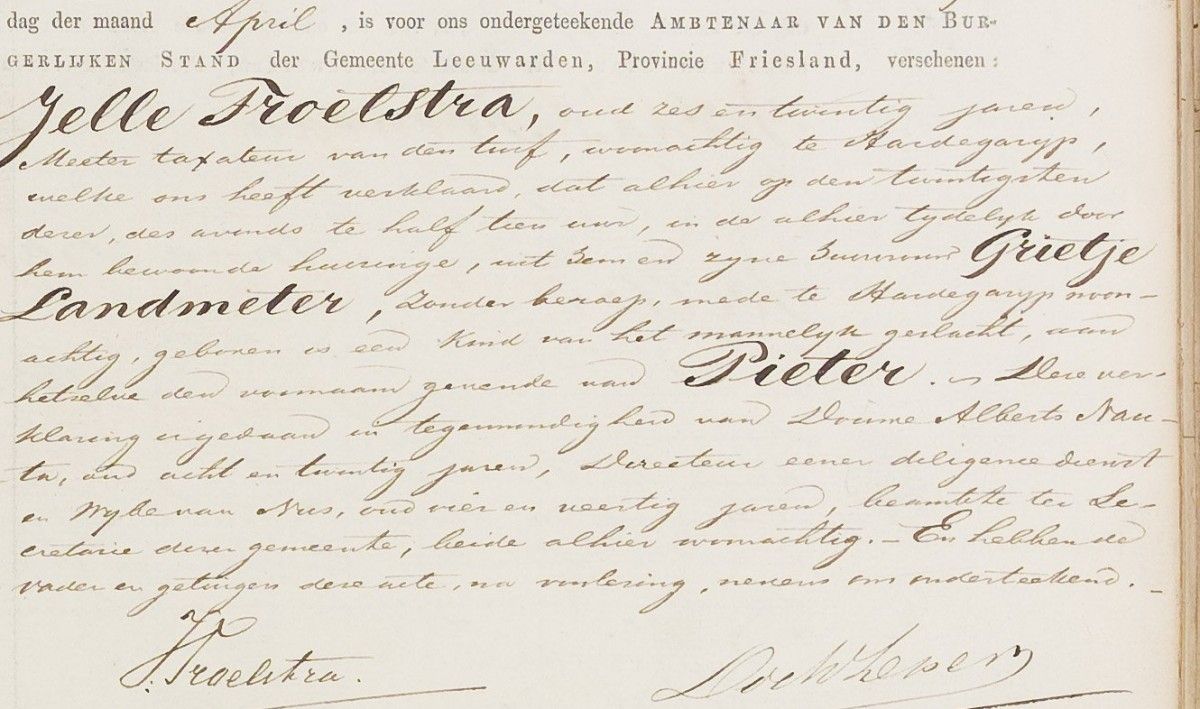 dag der maand April , is voor ons ondergeteekende AMBTENAAR VAN DEN BUR-
GERLIJKEN STAND der Gemeente Leeuwarden, Provincie Friesland, verschenen:
Jelle Troelstra, oud zes en twintig jaren,
Meeter taxateur van den turf, woonachtig te Hardegaryp,
welke ons heeft verklaard, dat alhier op den twintigsten
dezer, des avonds te half tien uur, in de alhier tydelyk door
hem bewoonde huizinge, uit hem en zyne huisvrouw Grietje
Landmeter, zonder beroep, mede te Hardegaryp woon-
achtig, geboren is een kind van het mannelyk geslacht, aan
hetzelve den voornaam gevende van Pieter. Deze ver-
klaring is gedaan in tegenwoordigheid van Douwe Alberts Nau-
ta, oud acht en twintig jaren, Directeur eener diligence dienst
en Wybe van Nes, oud vier en veertig jaren, beambte ter Se-
cretarie dezer gemeente, beide alhier woonachtig. – En hebben de
vader en getuigen deze acte, na voorlezing, nevens ons onderteekend. –
J. Troelstra.